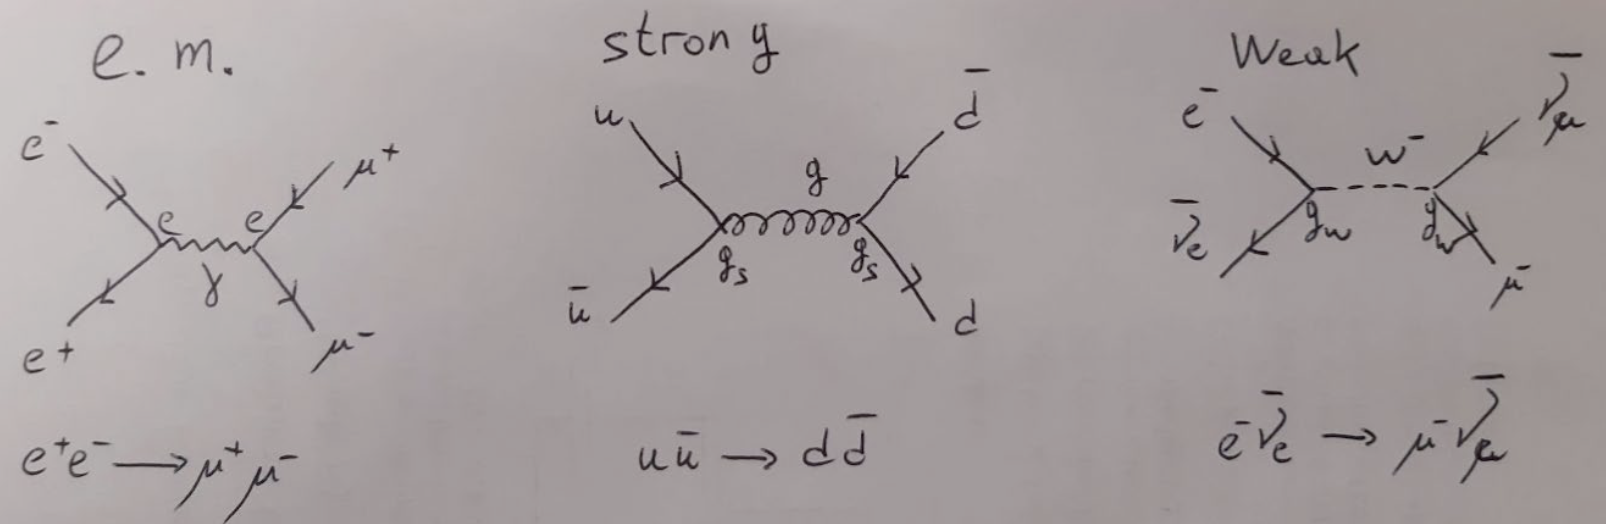 e. m.
e⁻
μ⁺
e e
γ
e⁺
μ⁻
e⁺e⁻ → μ⁺ μ⁻
strong
u
d̅
g
g_s g_s
u̅
d
u u̅ → d d̅
Weak
e⁻
ν̅_μ
W⁻
g_w g_w
ν̅_e
μ⁻
e⁻ ν̅_e → μ⁻ ν̅_μ